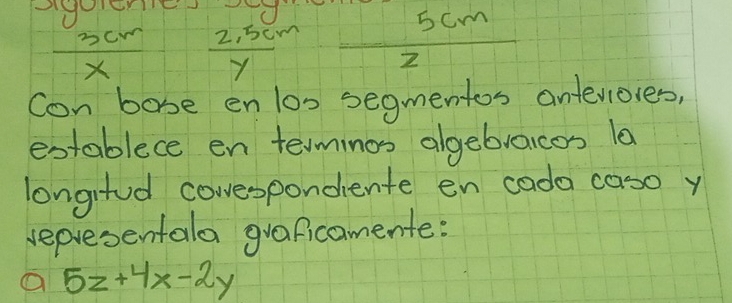 3cm 2,5cm 5cm
x y z
Con base en los segmentos anteriores,
establece en terminos algebraicos la
longitud correspondiente en cada caso y
representala graficamente:
a 5z+4x-2y